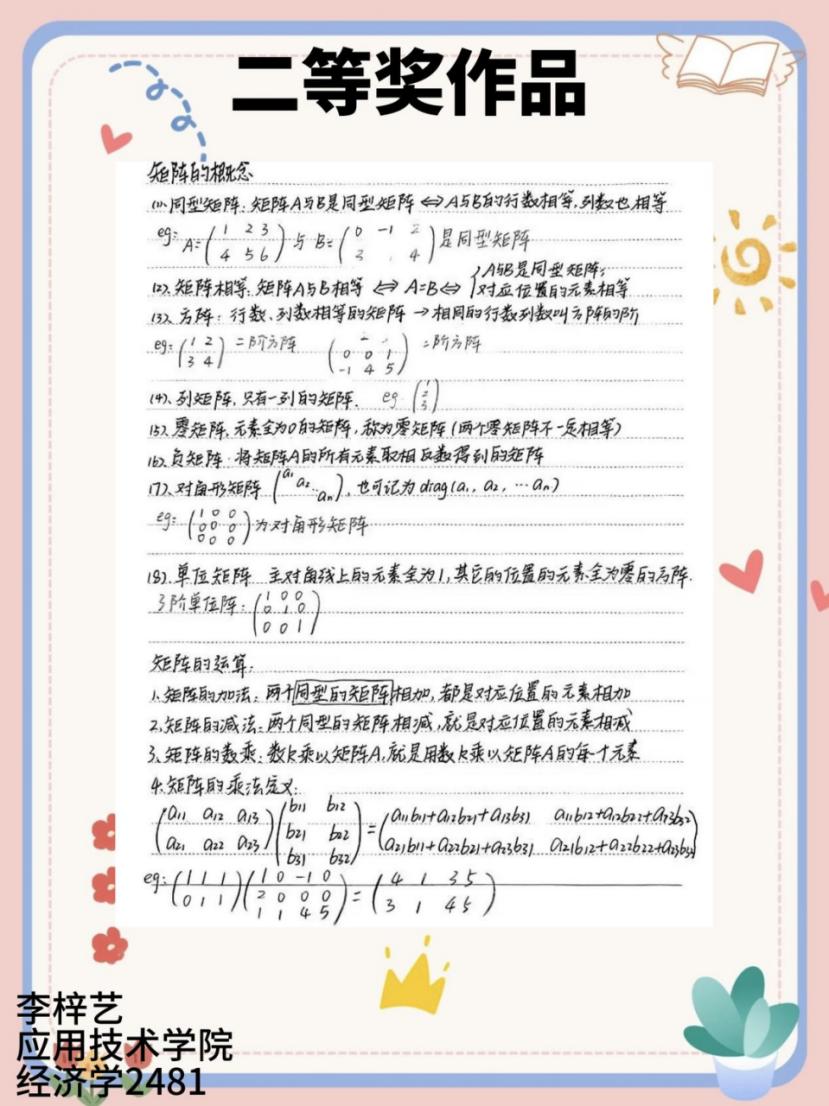 二等奖作品
矩阵的概念
(1).同型矩阵:矩阵A与B是同型矩阵⇔A与B的行数相等,列数也相等
eg: A=(1 2 3
4 5 6) 与 B=(0 -1 2
3 4) 是同型矩阵
(2).矩阵相等:矩阵A与B相等 ⇔ A=B⇔ {A与B是同型矩阵;
对应位置的元素相等
(3).方阵:行数、列数相等的矩阵 → 相同的行数列数叫方阵的阶
eg: (1 2
3 4) 二阶方阵
(2
0 0 1
-1 4 5) 二阶方阵
(4).列矩阵,只有一列的矩阵. eg (1
2
3)
(5).零矩阵,元素全为0的矩阵,称为零矩阵(两个零矩阵不一定相等)
(6).负矩阵.将矩阵A的所有元素取相反数得到的矩阵
(7).对角形矩阵 (a1
a2
⋱
an),也可记为diag(a1, a2, …an)
eg: (1 0 0
0 0 0
0 0 0) 为对角形矩阵
(8).单位矩阵 主对角线上的元素全为1,其它的位置的元素全为零的方阵.
3阶单位阵:(1 0 0
0 1 0
0 0 1)
矩阵的运算:
1.矩阵的加法:两个同型的矩阵相加,都是对应位置的元素相加
2.矩阵的减法:两个同型的矩阵相减,就是对应位置的元素相减
3.矩阵的数乘:数k乘以矩阵A,就是用数k乘以矩阵A的每个元素
4.矩阵的乘法定义:
(a11 a12 a13
a21 a22 a23)(b11 b12
b21 b22
b31 b32)=(a11b11+a12b21+a13b31 a11b12+a12b22+a13b32
a21b11+a22b21+a23b31 a21b12+a22b22+a23b32)
eg: (1 1 1
0 1 1)(1 0 -1 0
2 0 0 0
1 1 4 5)=(4 1 3 5
3 1 4 5)
李梓艺
应用技术学院
经济学2481